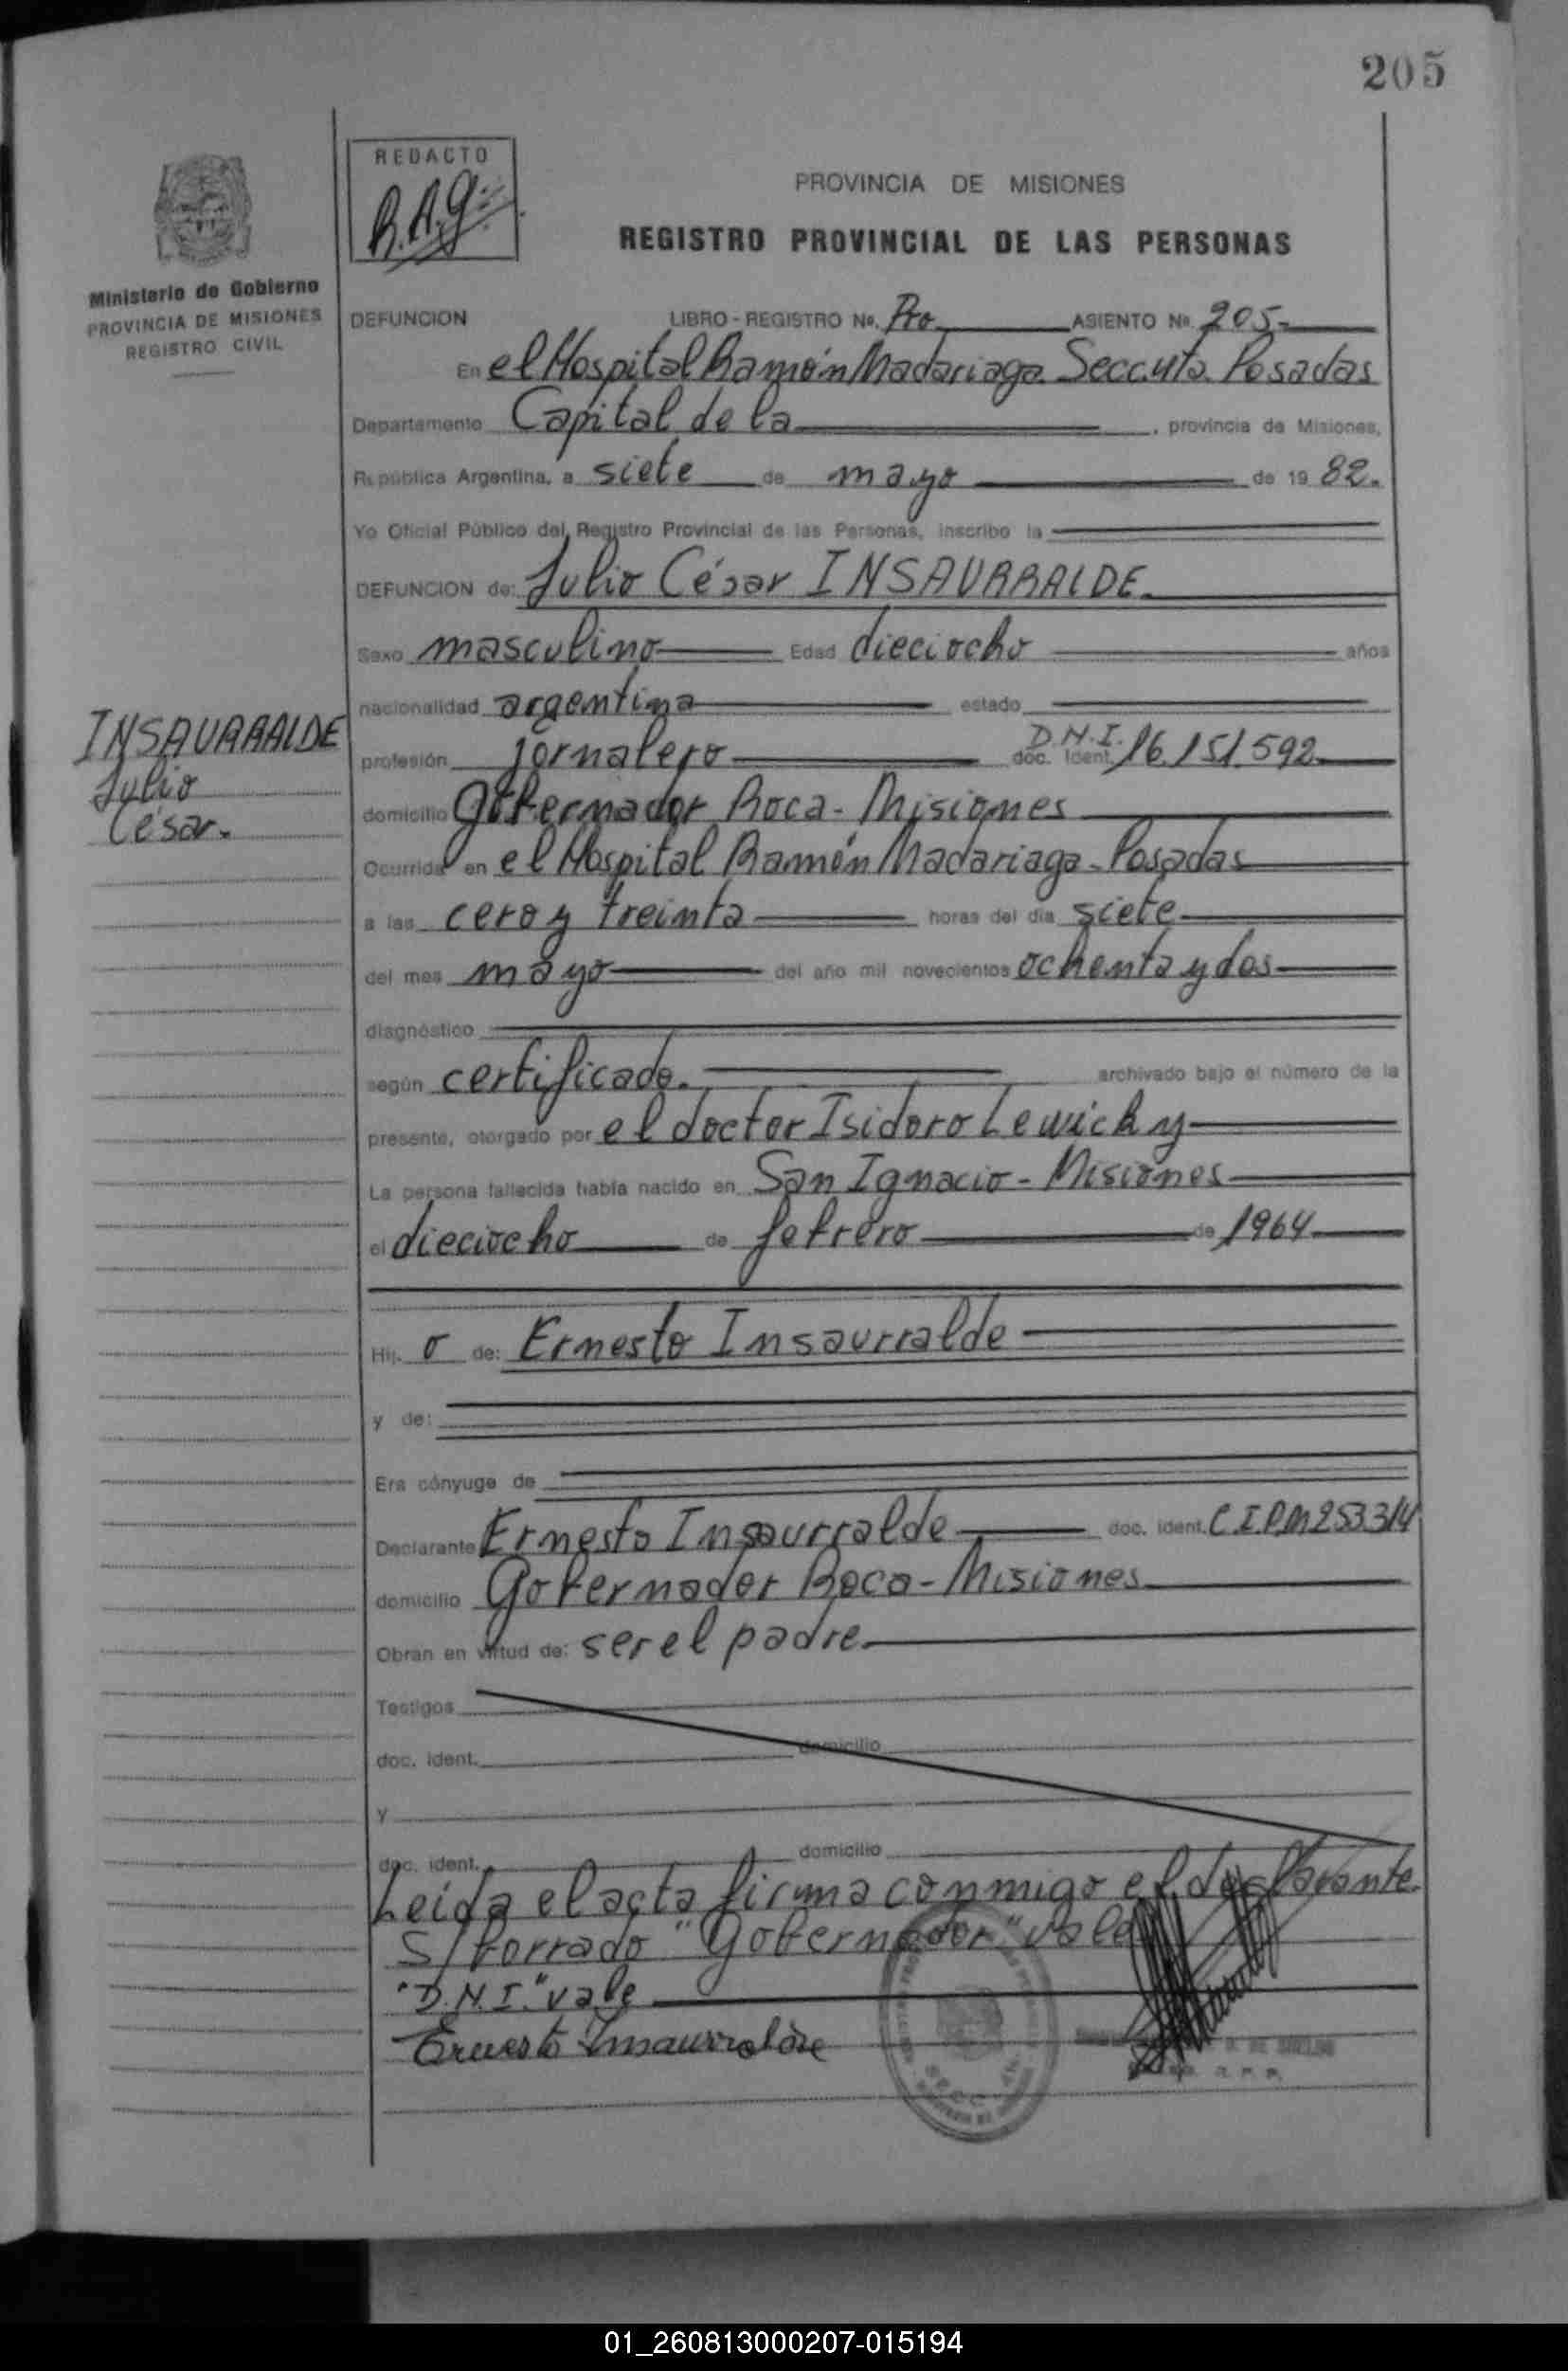 205
REDACTO
R.A.g.
PROVINCIA DE MISIONES
REGISTRO PROVINCIAL DE LAS PERSONAS
Ministerio de Gobierno
PROVINCIA DE MISIONES
REGISTRO CIVIL
DEFUNCION LIBRO - REGISTRO No. Pro ASIENTO No. 205-
En el Hospital Ramón Madariaga Secc. 4ta. Posadas
Departamento Capital de la , provincia de Misiones,
República Argentina, a siete de mayo de 19 82.
Yo Oficial Público del Registro Provincial de las Personas, inscribo la
DEFUNCION de: Julio César INSAURRALDE.
Sexo masculino Edad dieciocho años
nacionalidad argentina estado
profesión jornalero D.N.I. doc. ident. 16.151.592
domicilio Gobernador Roca - Misiones
Ocurrida en el Hospital Ramón Madariaga - Posadas
a las cero y treinta horas del día siete
del mes mayo del año mil novecientos ochenta y dos
diagnóstico
según certificado. archivado bajo el número de la
presente, otorgado por el doctor Isidoro Lewicky
La persona fallecida había nacido en San Ignacio - Misiones
el dieciocho de febrero de 1964
Hij o de: Ernesto Insaurralde
y de:
Era cónyuge de
Declarante Ernesto Insaurralde doc. ident. C.I.P.M 253314
domicilio Gobernador Roca - Misiones
Obran en virtud de: ser el padre.
Testigos
doc. ident. domicilio
y
doc. ident. domicilio
Leída el acta firma conmigo el declarante
S/borrado "Gobernador" vale
"D.N.I." vale
Ernesto Insaurralde
INSAURRALDE
Julio
César.
01_260813000207-015194